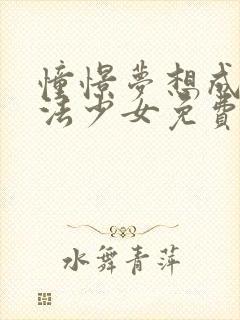 憧憬夢想成
法少女免費
水舞青萍